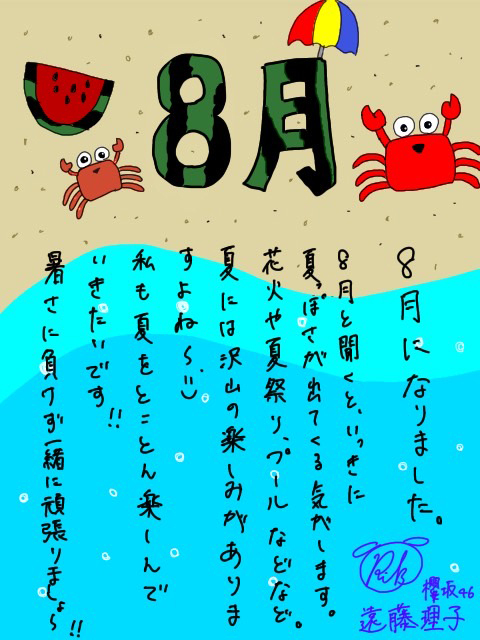 8月
8月になりました。
8月と聞くと、いっきに
夏っぽさが出てくる気がします。
花火や夏祭り、プールなどなど。
夏には沢山の楽しみがありま
すよね〜。
私も夏をとことん楽しんで
いきたいです!!
暑さに負けず一緒に頑張りましょ〜!!
欅坂46
遠藤理子